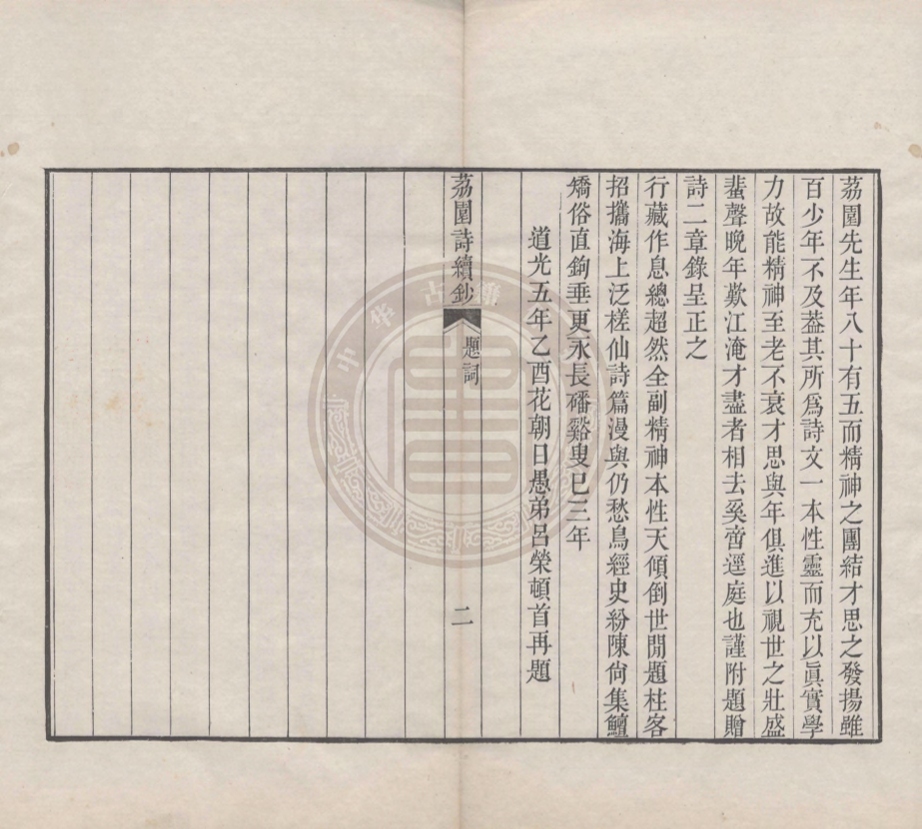 荔園先生年八十有五而精神之團結才思之發揚雖
百少年不及葢其所爲詩文一本性靈而充以眞實學
力故能精神至老不衰才思與年俱進以視世之壯盛
蜚聲晚年歎江淹才盡者相去奚啻逕庭也謹附題贈
詩二章錄呈正之
行藏作息總超然全副精神本性天傾倒世閒題柱客
招攜海上泛槎仙詩篇漫與仍愁鳥經史紛陳尙集鱣
矯俗直鉤垂更永長磻谿叟已三年
道光五年乙酉花朝日愚弟呂榮頓首再題
荔園詩續鈔
題詞
二